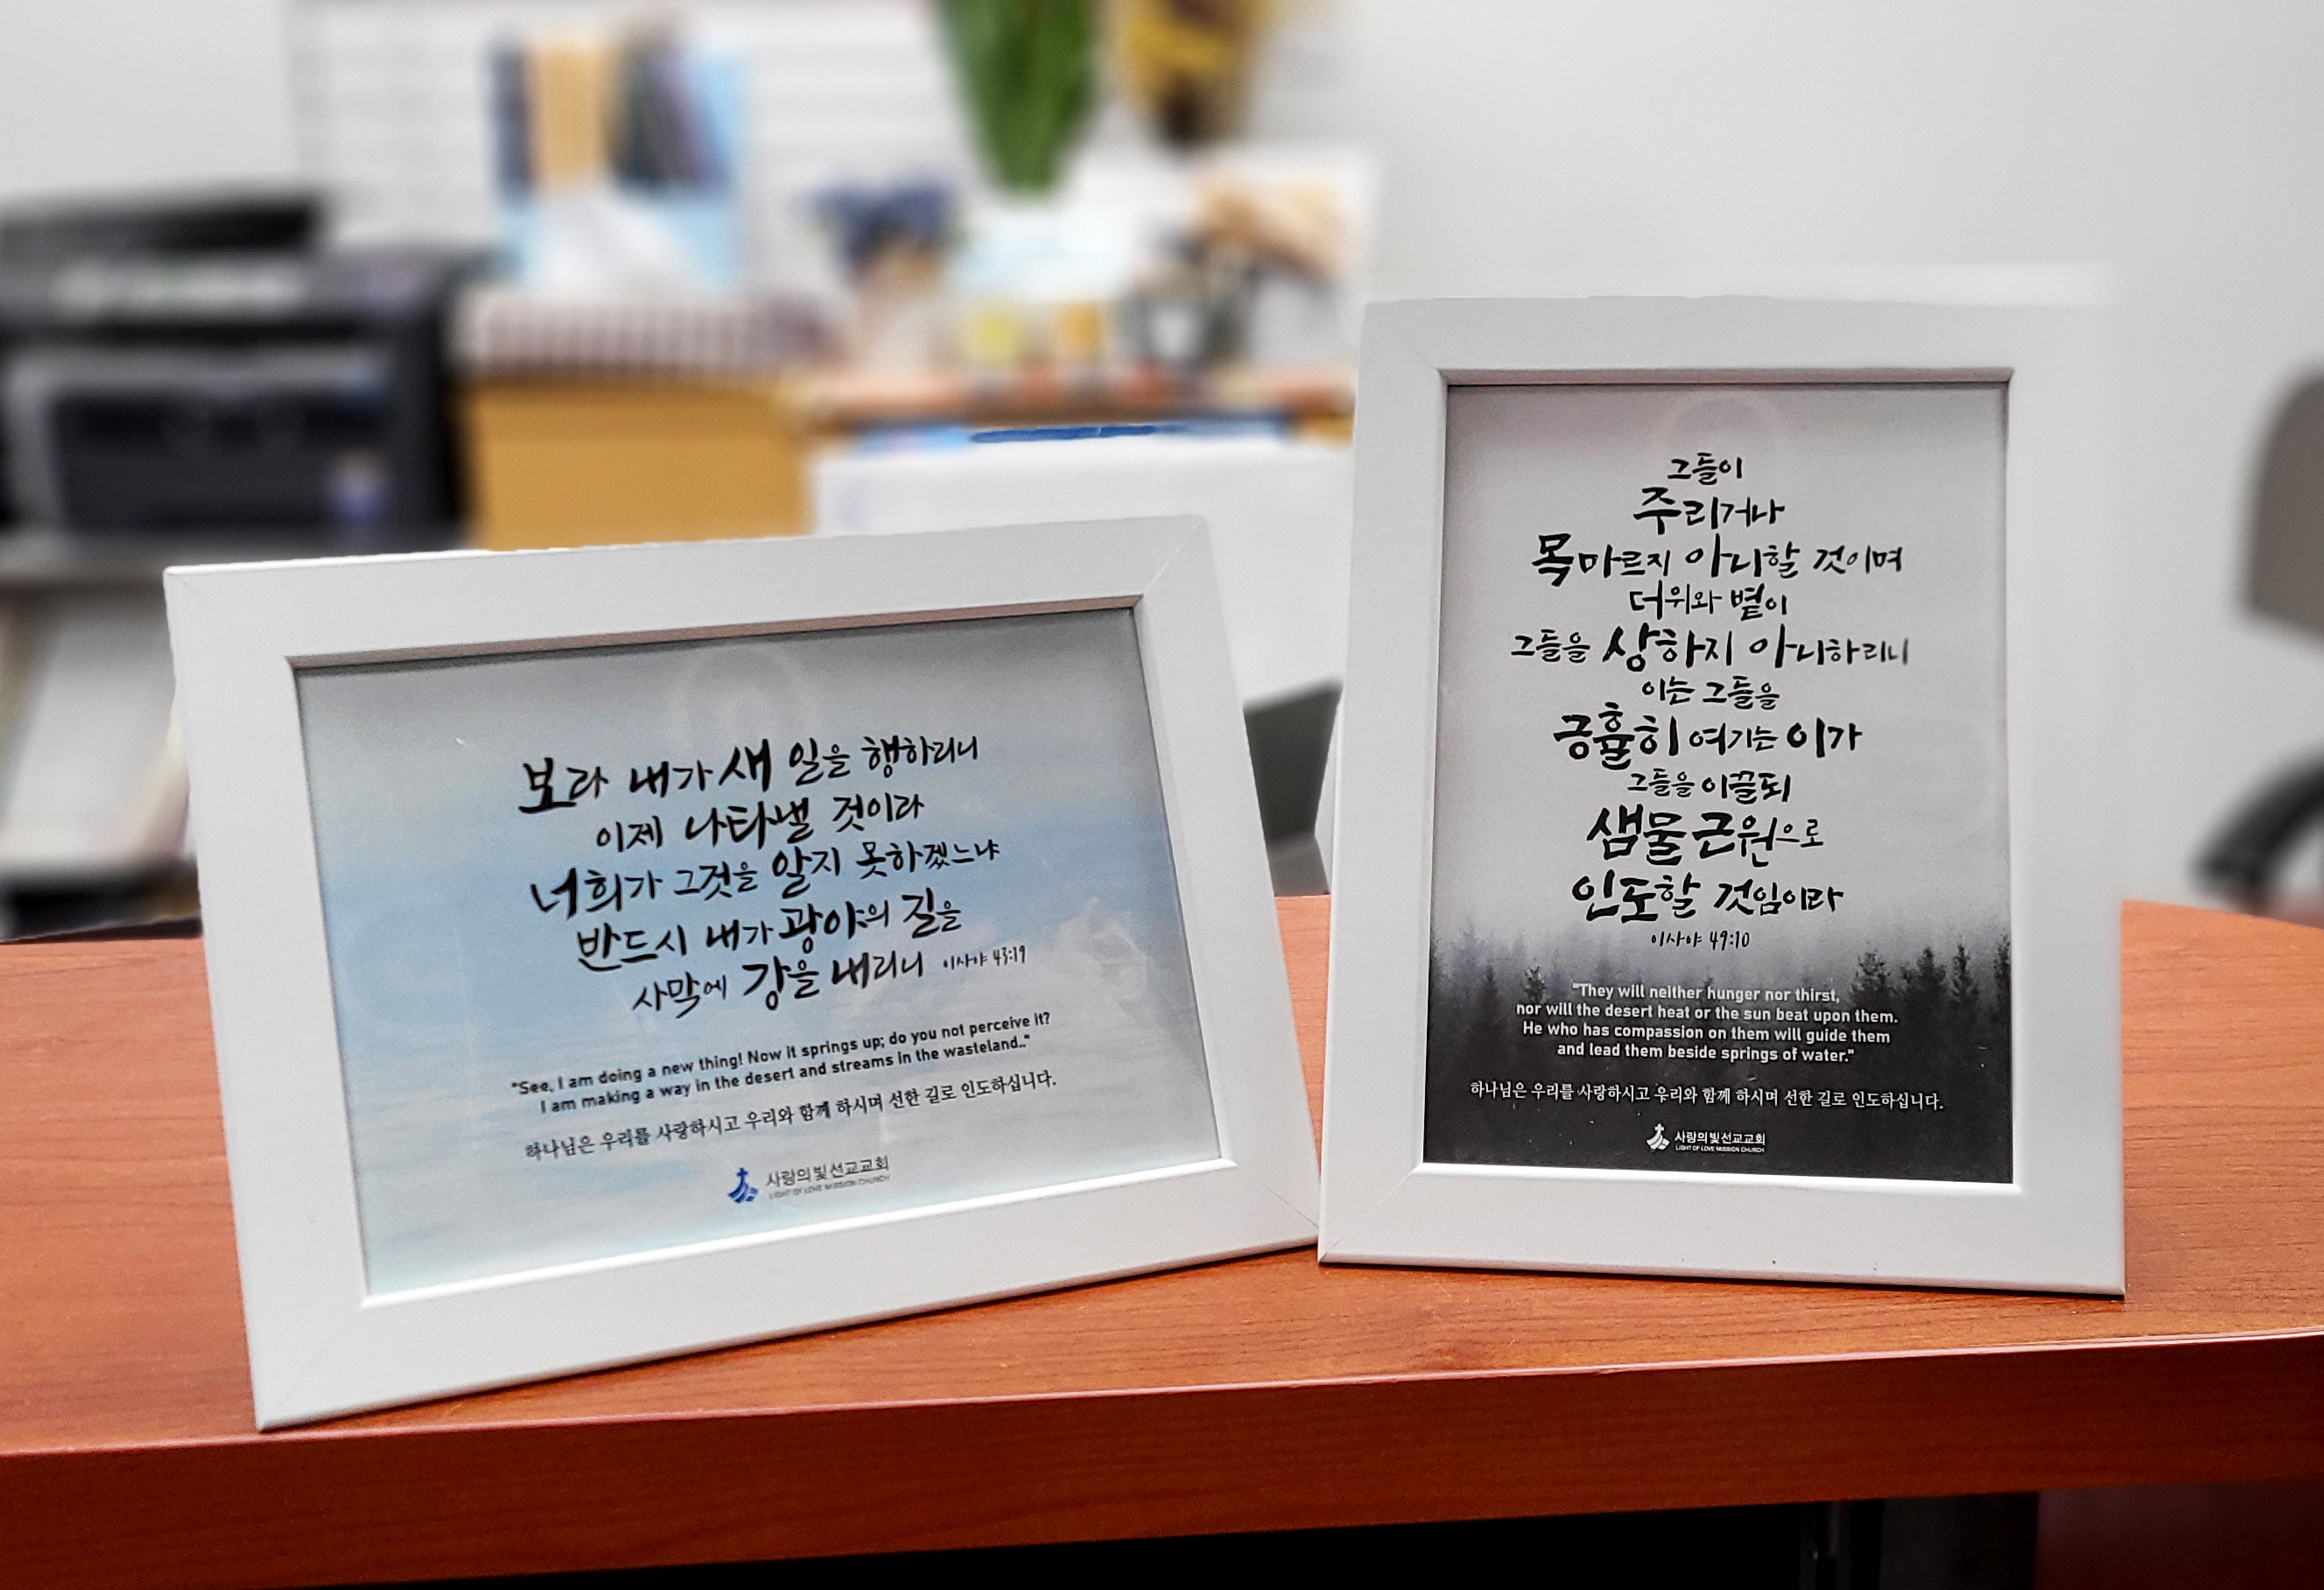 보라 내가 새 일을 행하리니
이제 나타낼 것이라
너희가 그것을 알지 못하겠느냐
반드시 내가 광야의 길을
사막에 강을 내리니 이사야 43:19
"See, I am doing a new thing! Now it springs up; do you not perceive it?
I am making a way in the desert and streams in the wasteland.."
하나님은 우리를 사랑하시고 우리와 함께 하시며 선한 길로 인도하십니다.
사랑의빛선교교회
LIGHT OF LOVE MISSION CHURCH
그들이
주리거나
목마르지 아니할 것이며
더위와 볕이
그들을 상하지 아니하리니
이는 그들을
긍휼히 여기는 이가
그들을 이끌되
샘물 근원으로
인도할 것임이라
이사야 49:10
"They will neither hunger nor thirst,
nor will the desert heat or the sun beat upon them.
He who has compassion on them will guide them
and lead them beside springs of water."
하나님은 우리를 사랑하시고 우리와 함께 하시며 선한 길로 인도하십니다.
사랑의빛선교교회
LIGHT OF LOVE MISSION CHURCH